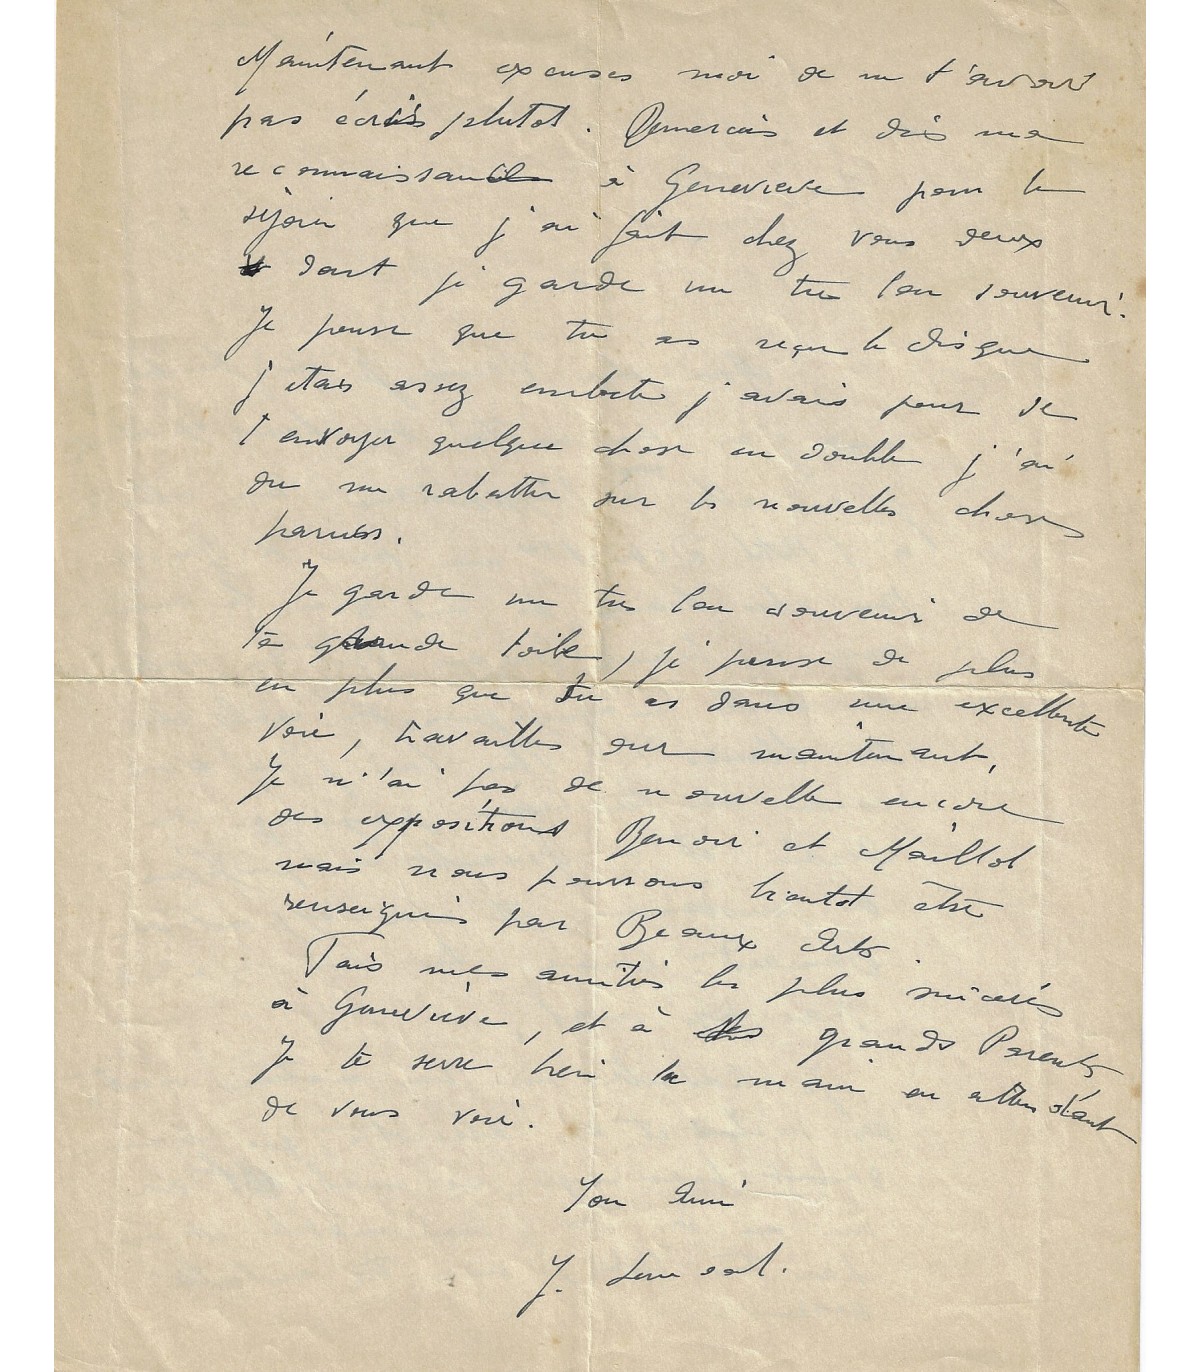 Maintenant excuses moi de ne t'avoir
pas écris plutot. Remercies et dis ma
reconnaissance à Genevieve pour le
séjour que j'ai fait chez vous deux
dont je garde un tres bon souvenir.
Je pense que tu as reçu le disque
j'etais assez embeté j'avais peur de
t'envoyer quelque chose en double j'ai
du me rabattre sur les nouvelles choses
parues.
Je garde un tres bon souvenir de
ta grande toile, je pense de plus
en plus que tu es dans une excellente
voie, travailles sur maintenant,
Je n'ai pas de nouvelle encore
des expositions Renoir et Maillol
mais nous pourrons bientot être
renseignés par Beaux Arts.
Fais mes amitiés les plus sincères
à Geneviève, et à grands Parents
Je te serre bien la main en attendant
de vous voir.
Ton Ami